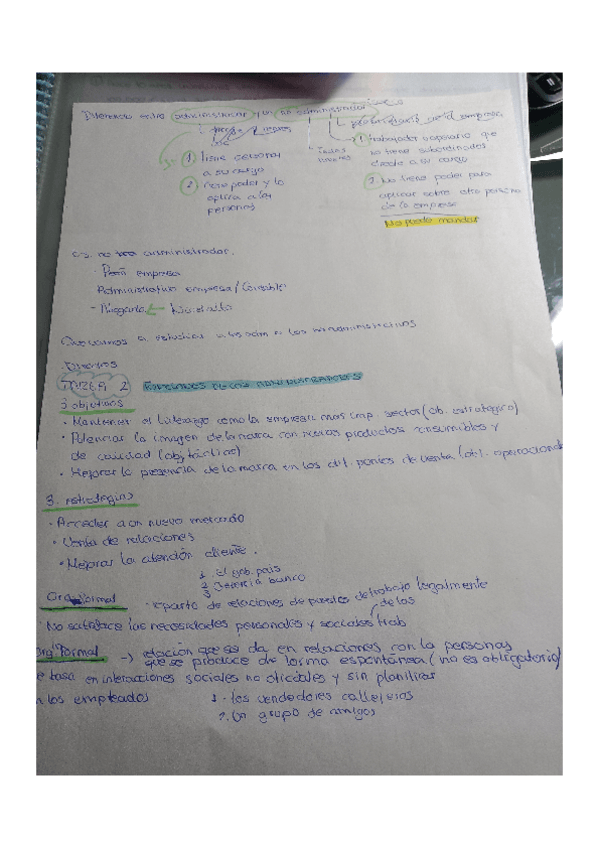 Diferencia entre administrador y un no administrador
1) tiene personas
a su cargo
2) tiene poder y lo
aplica a las
personas
1) trabajador operario que
no tiene subordinados
directo a su cargo
2) No tiene poder para
aplicar sobre otra persona
de la empresa
No puede mandar
no sea administrador.
empresa
Administrativo empresa / Contable
Que vamos a estudiar a los adm o los no administrativos
TAREA 2 FUNCIONES DE LOS ADMINISTRADORES
3 objetivos
• Mantener el liderazgo como la empresa mas imp. sector (ob. estratégico)
• Potenciar la imagen de la marca con nuevos productos consumibles y
de calidad (obj táctico)
• Mejorar la presencia de la marca en los dif. puntos de venta (obj. operacional
3. estrategias
• Acceder a un nuevo mercado
• Venta de relaciones
• Mejorar la atención cliente.
1. El gob. país
2 Jerarquía banco
3
Org. Formal
reparto de relaciones de puestos de trabajo legalmente
No satisface las necesidades personales y sociales de los trab
Org. Formal → relacion que se da en relaciones con la personas
que se produce de forma espontánea (no es obligatorio)
e basa en interacciones sociales no oficiales y sin planificar
n los empleados 1. los vendedores callejeros
2. Un grupo de amigos